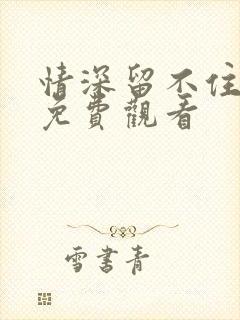 情深留不住
免費觀看
雪書青